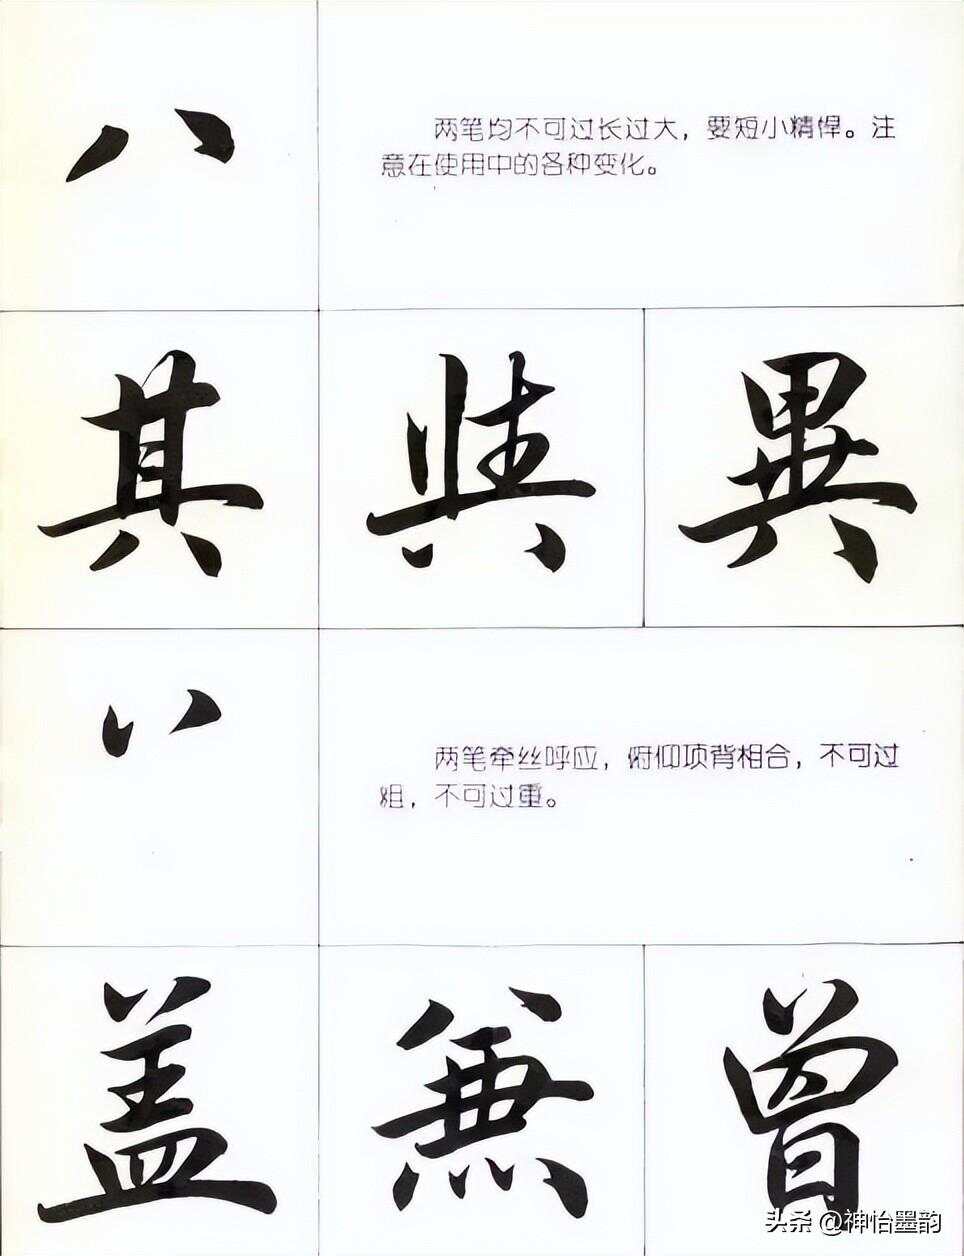 八
两笔均不可过长过大，要短小精悍。注
意在使用中的各种变化。
其 異
丷
两笔牵丝呼应，俯仰项背相合，不可过
粗，不可过重。
盖 兼 曾
头条 @神怡墨韵